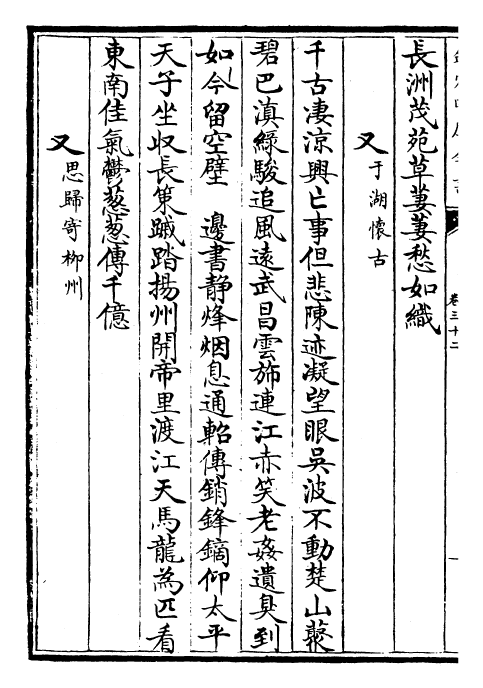 卷三十二
長洲茂苑草萋萋愁如織
又于湖懷古
千古凄涼興亡事但悲陳迹凝望眼吳波不動楚山藂
碧巴滇綠駿追風遠武昌雲斾連江赤笑老姦遺臭到
如今留空壁　邊書静烽烟息通軺傳銷鋒鏑仰太平
天子坐収長策蹴踏揚州開帝里渡江天馬龍為匹看
東南佳氣鬱葱葱傳千億
又思歸寄柳州